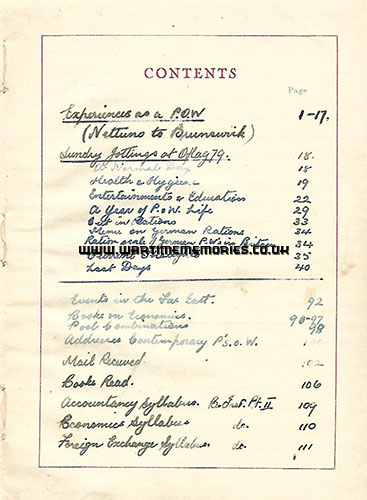 CONTENTS
Page
Experiences as a P.O.W 1-17.
(Nettuno to Brunswick)
Sundry Jottings at Oflag 79. 18.
A Normal Day 18
Health & Hygiene 19
Entertainments & Education 22
A Year of P.o.W. Life 29
Cut in Rations 33
Menu on German Rations 34
Ration scale of German P.Ws in Britain 34
www.wartimememories.co.uk
35
Last Days 40
Events in the Far East. 92
Books on Economics. 96-97
Pool Combinations 98
Addresses Contemporary P's.o.W. 100
Mail Received. 102
Books Read. 106
Accountancy Syllabus. B. Inst. Pt. II 109
Economics Syllabus do. 110
Foreign Exchange Syllabus. do. 111